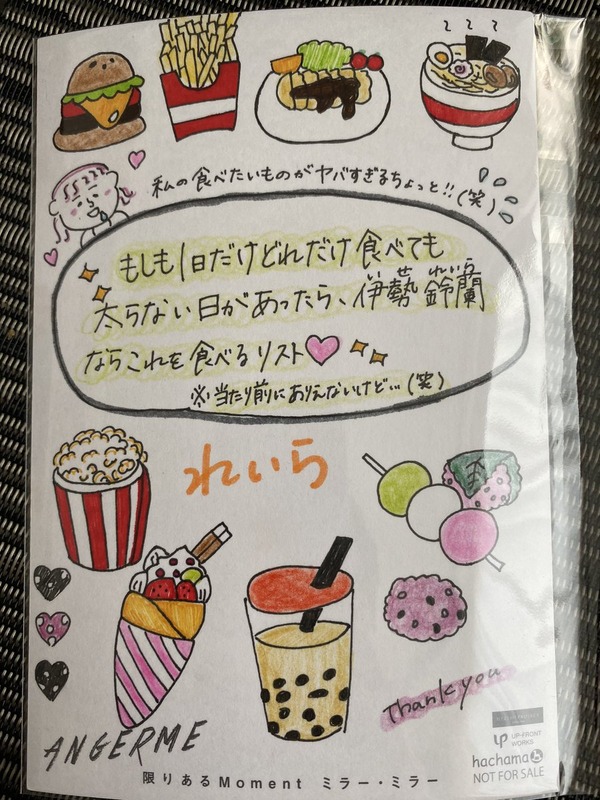 私の食べたいものがヤバすぎるちょっと!!(笑)
もしも1日だけどれだけ食べても
いせ れいら
太らない日があったら、伊勢 鈴蘭
ならこれを食べるリスト
※当たり前にありえないけど…(笑)
れいら
Thank you
ANGERME
UP-FRONT
WORKS
hachama
NOT FOR SALE
限りあるMoment ミラー・ミラー